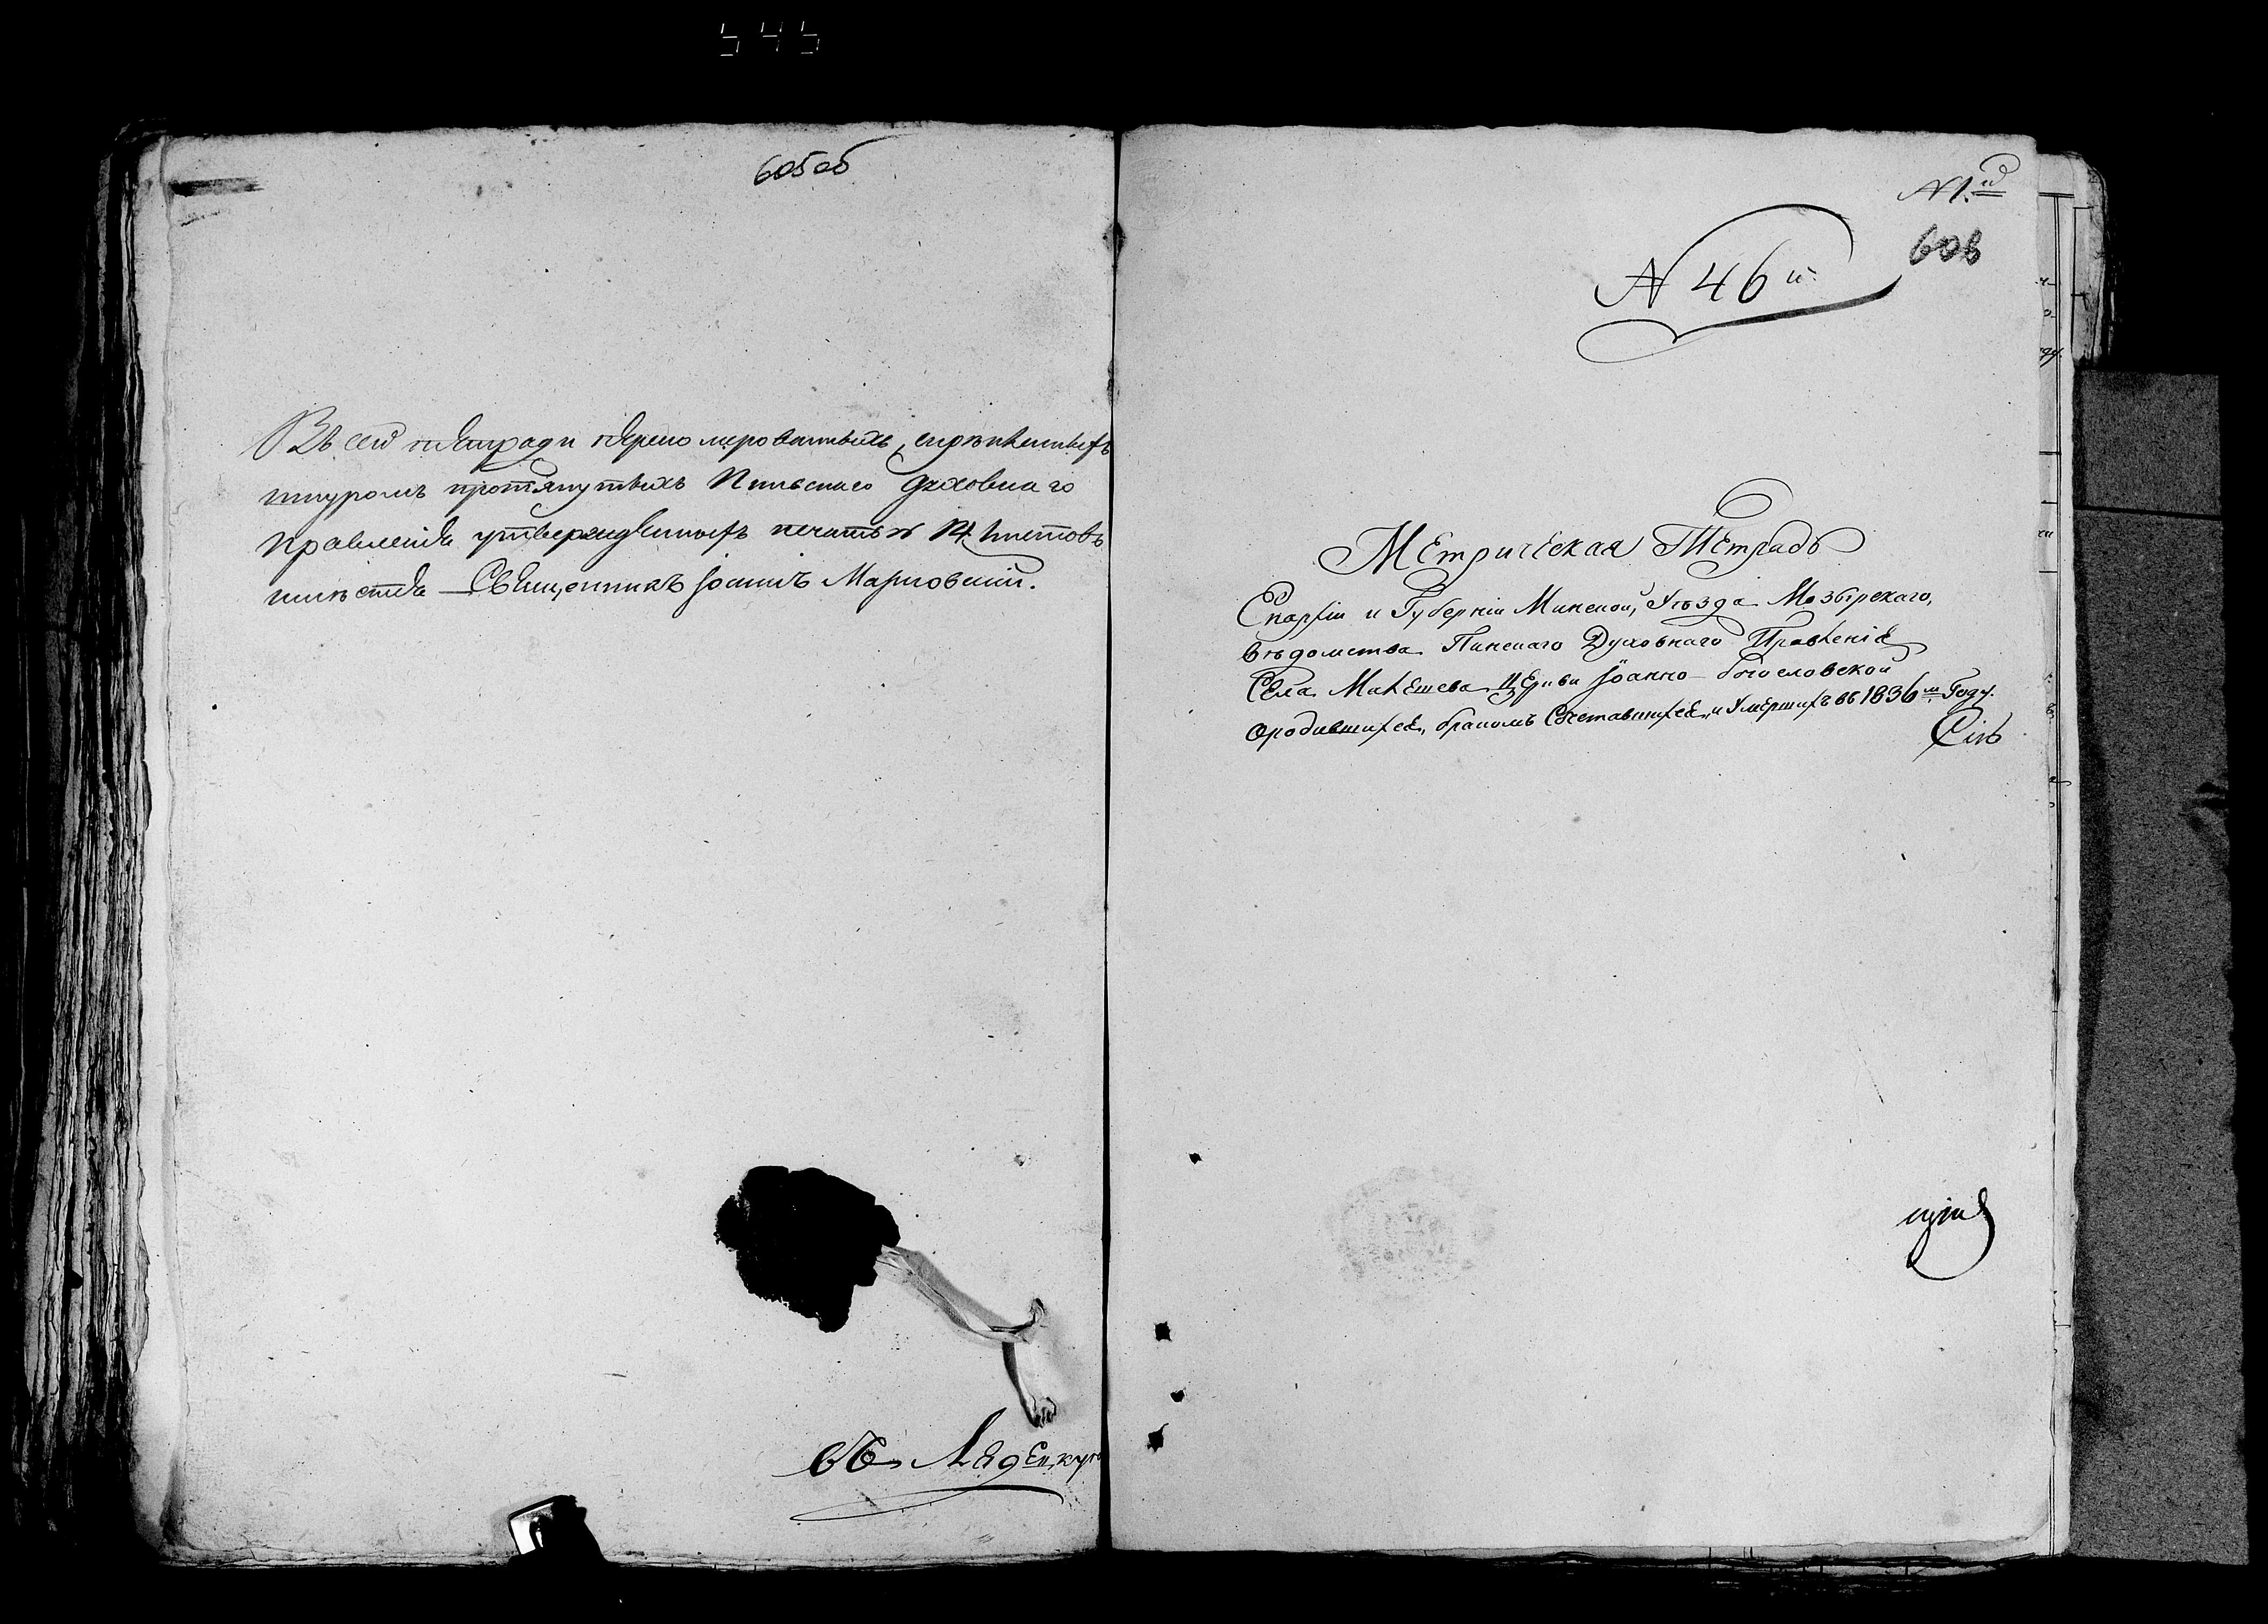 545
605 об
Въ сей тетради перенумерованныхъ, скрѣпленныхъ
шнуромъ протянутыхъ Пинскаго духовнаго
Правленія утвержденныхъ печатью 14 листовъ
шнѣстія — Священникъ Іоаннъ Марковскій.
въ Лядецкую
N 1.й
606
N 46й
Метрическая Тетрадь
Епархіи и Губерніи Минской, Уѣзда Мозырскаго,
Вѣдомства Пинскаго Духовнаго Правленія
Села Макешева Церкви Іоанно-богословской
Ородившихся, бракомъ Сочетавшихся, и Умершихъ въ 1836м Году.
Сіи